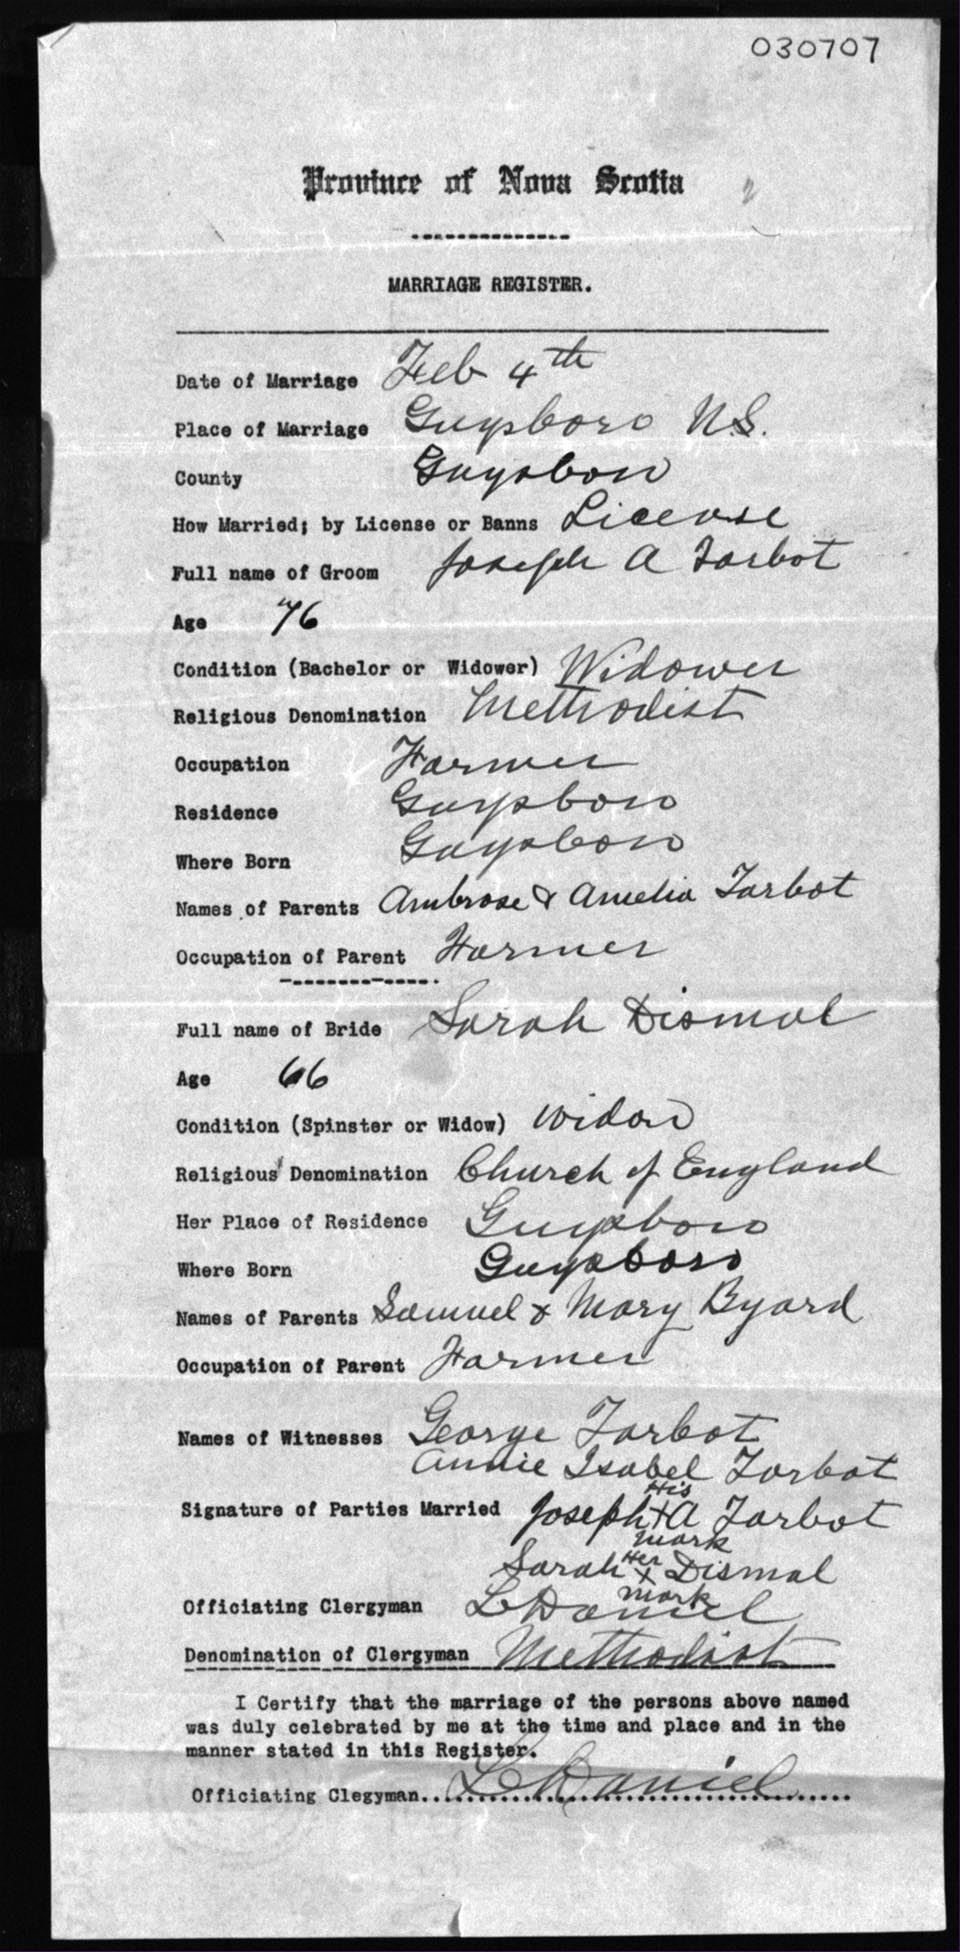 030707
Province of Nova Scotia
MARRIAGE REGISTER.
Date of Marriage Feb 4th
Place of Marriage Guysboro N.S.
County Guysboro
How Married; by License or Banns License
Full name of Groom Joseph A Tarbot
Age 76
Condition (Bachelor or Widower) Widower
Religious Denomination Methodist
Occupation Farmer
Residence Guysboro
Where Born Guysboro
Names of Parents Ambrose & Amelia Tarbot
Occupation of Parent Farmer
Full name of Bride Sarah Dismal
Age 66
Condition (Spinster or Widow) Widow
Religious Denomination Church of England
Her Place of Residence Guysboro
Where Born Guysboro
Names of Parents Samuel & Mary Byard
Occupation of Parent Farmer
Names of Witnesses George Tarbot
Annie Isabel Tarbot
His
Signature of Parties Married Joseph X A Tarbot
mark
Sarah Her X Dismal
mark
Officiating Clergyman Daniel
Denomination of Clergyman Methodist
I Certify that the marriage of the persons above named
was duly celebrated by me at the time and place and in the
manner stated in this Register.
Officiating Clegyman.. Daniel